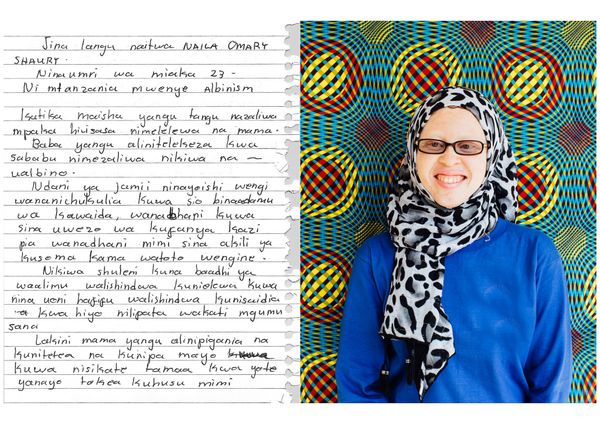 Jina langu naitwa NAILA OMARY
SHAURY.
Nina umri wa miaka 23 -
Ni mtanzania mwenye Albinism
Katika maisha yangu tangu nazaliwa
mpaka hivi sasa nimelelewa na mama.
Baba yangu alinitelekeza kwa
sababu nimezaliwa nikiwa na -
ualbino.
Ndani ya jamii ninayoishi wengi
wananichukulia kuwa sio binaadamu
wa kawaida, wanadhani kuwa
sina uwezo wa kufanya kazi
pia wanadhani mimi sina akili ya
kusoma kama watoto wengine.
Nikiwa shuleni kuna baadhi ya
waalimu walishindwa kunielewa kuwa
nina uoni hafifu walishindwa kunisaidia
kwa hiyo nilipata wakati mgumu
sana
Lakini mama yangu alinipigania na
kunitetea na kunipa moyo
kuwa nisikate tamaa kwa yote
yanayo tokea kuhusu mimi